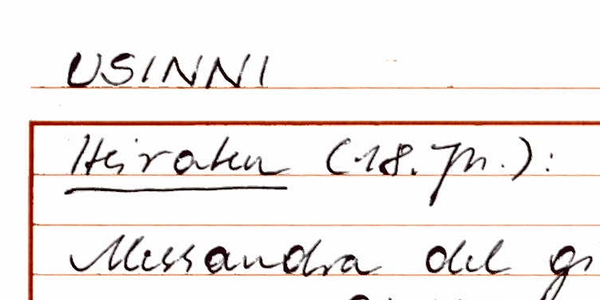 USINNI
Heiraten (18. Jh.):
Alessandra del